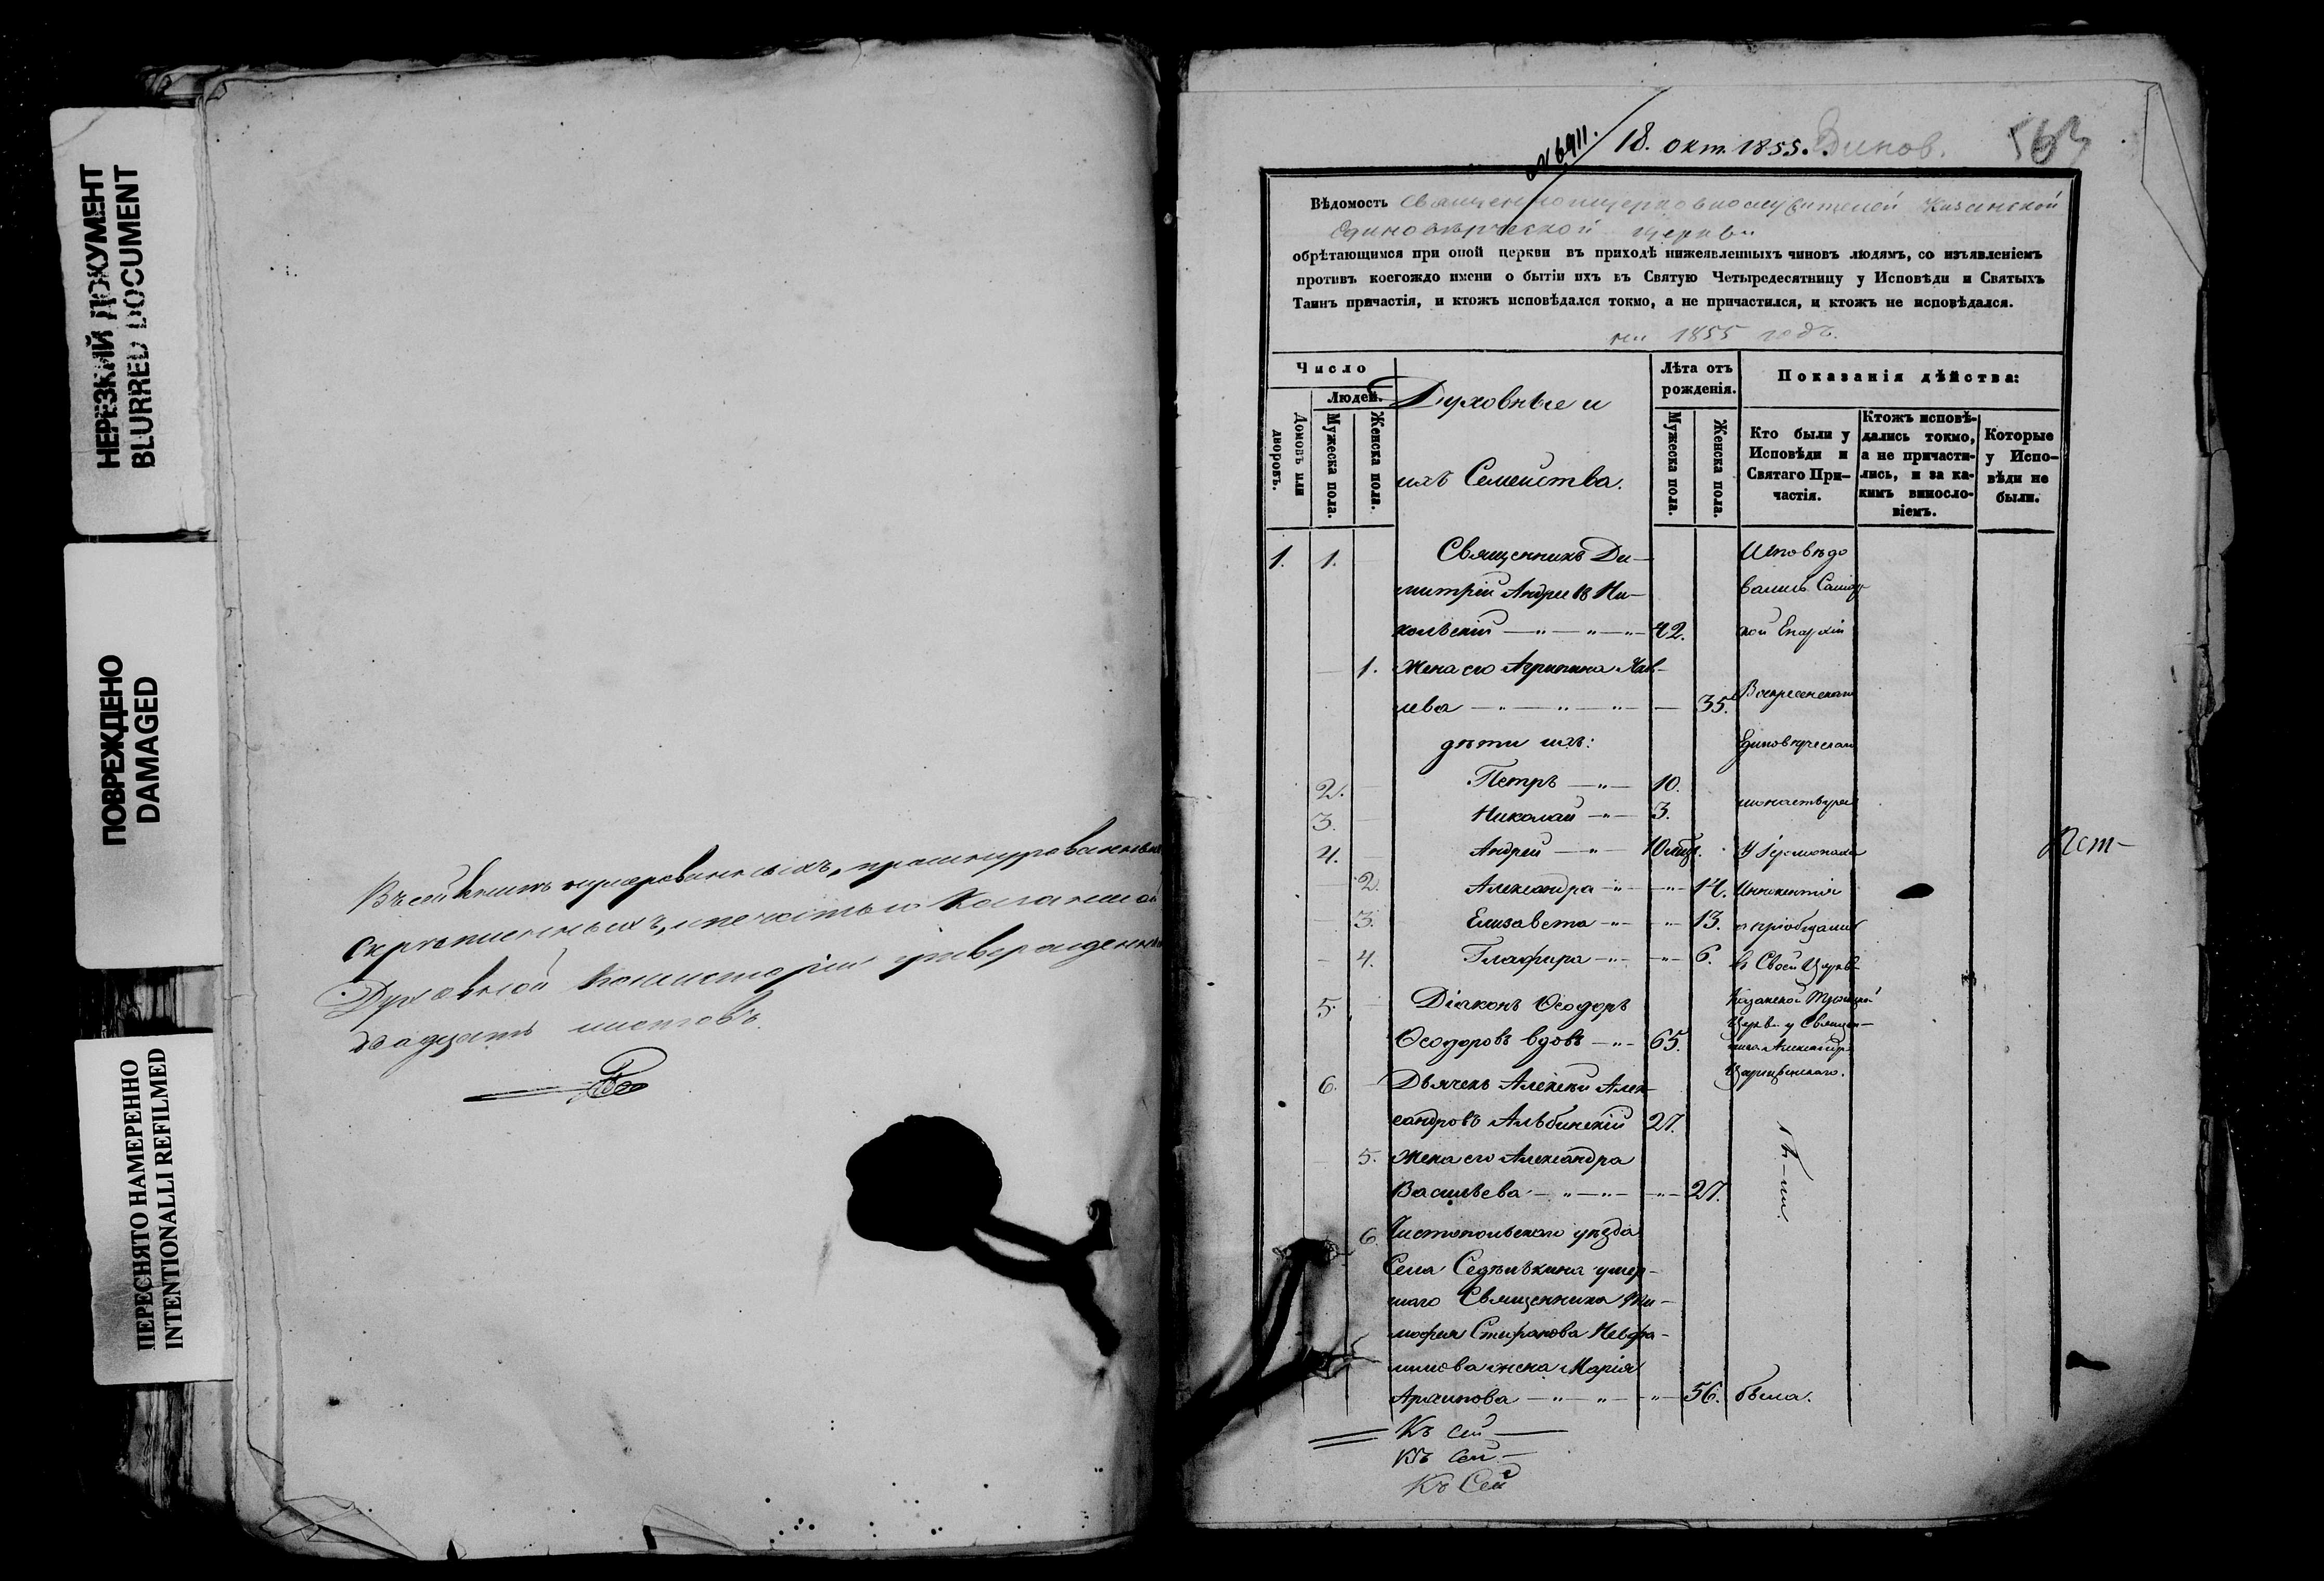 НЕРЕЗКИЙ ДОКУМЕНТ
BLURRED DOCUMENT
ПОВРЕЖДЕНО
DAMAGED
ПЕРЕСНЯТО НАМЕРЕННО
INTENTIONALLI REFILMED
Въ сей книгѣ нумерованныхъ, прошнурованныхъ
скрѣпленныхъ, и печатью Казанской
Духовной Консисторіи утвержденныхъ
двадцать листовъ.
№ 6911. 18. окт. 1855. Единов. 563
Вѣдомость священноцерковнослужителей Казанской
Единовѣрческой церкви
обрѣтающимся при оной церкви въ приходѣ нижеявленныхъ чиновъ людямъ, со изъявленіемъ
противъ коегождо имени о бытіи ихъ въ Святую Четыредесятницу у Исповѣди и Святыхъ
Таинъ причастія, и ктожъ исповѣдался токмо, а не причастился, и ктожъ не исповѣдался.
на 1855 годъ.
Число
Людей.
Домовъ или дворовъ.
Мужеска пола.
Женска пола.
Духовные и
ихъ Семейства.
Лѣта отъ рожденія.
Мужеска пола.
Женска пола.
Показанія дѣйства:
Кто были у Исповѣди и Святаго Причастія.
Ктожъ исповѣдались токмо, а не причастились, и за какимъ винословіемъ.
Которые у Исповѣди не были.
1. 1. Священникъ Ди- Исповѣдо
митрій Андреевъ Ни- вались
кольскій 42. кой Епархіи
1. Жена его Агрипина Яков-
лева 35. Воскресенскаго
дѣти ихъ: Единовѣрческаго
2. Петръ 10.
монастыря
3. Николай 3.
4. Андрей 10 мѣс. У Іеромонаха
2. Александра 14. Иннокентія
3. Елизавета 13. а пріобщались
4. Глафира 6. въ Своей Церкви
5. Діаконъ Ѳеодоръ Казанской Троицкой
Церкви у Священ-
Ѳеодоровъ вдовъ 65. ника Александра
6. Дьячекъ Алексѣй Алек- Царицынскаго.
сандровъ Альбинскій 27.
5. Жена его Александра
Васильева 27.
6 Чистопольскаго уѣзда
Села Седѣлькина умер-
шаго Священника
Стефанова
жена Марія
Архипова 56. была.
Къ сей
Къ сей
Къ Сей